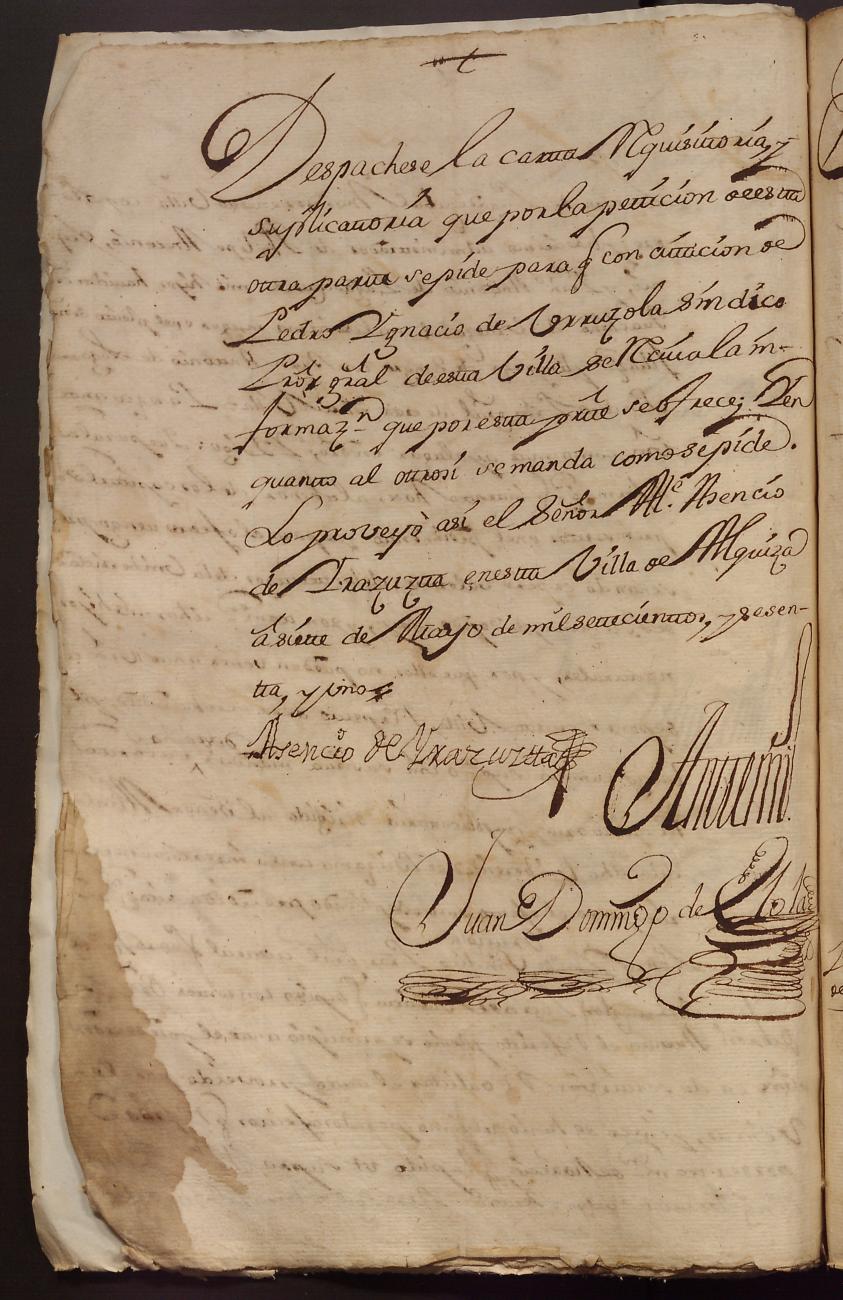 Despachese la carta Requisitoria, y
suplicatoria que por la peticion de esta
otra parte se pide para q con citacion de
Pedro Ygnacio de Urruzola Sindico
Pror gral de esta Villa se Reciva la in-
formazn que por esta parte se ofrece; Y en
quanto al otrosi se manda como se pide.
Lo proveyò asi el Señor Alce Asencio
de Yrazuzta en esta Villa de Alquiza
à siete de Mayo de mil setecientos, y sesen-
ta, y uno
Asencio de Yrazuzta
Antemi
Juan Domingo de